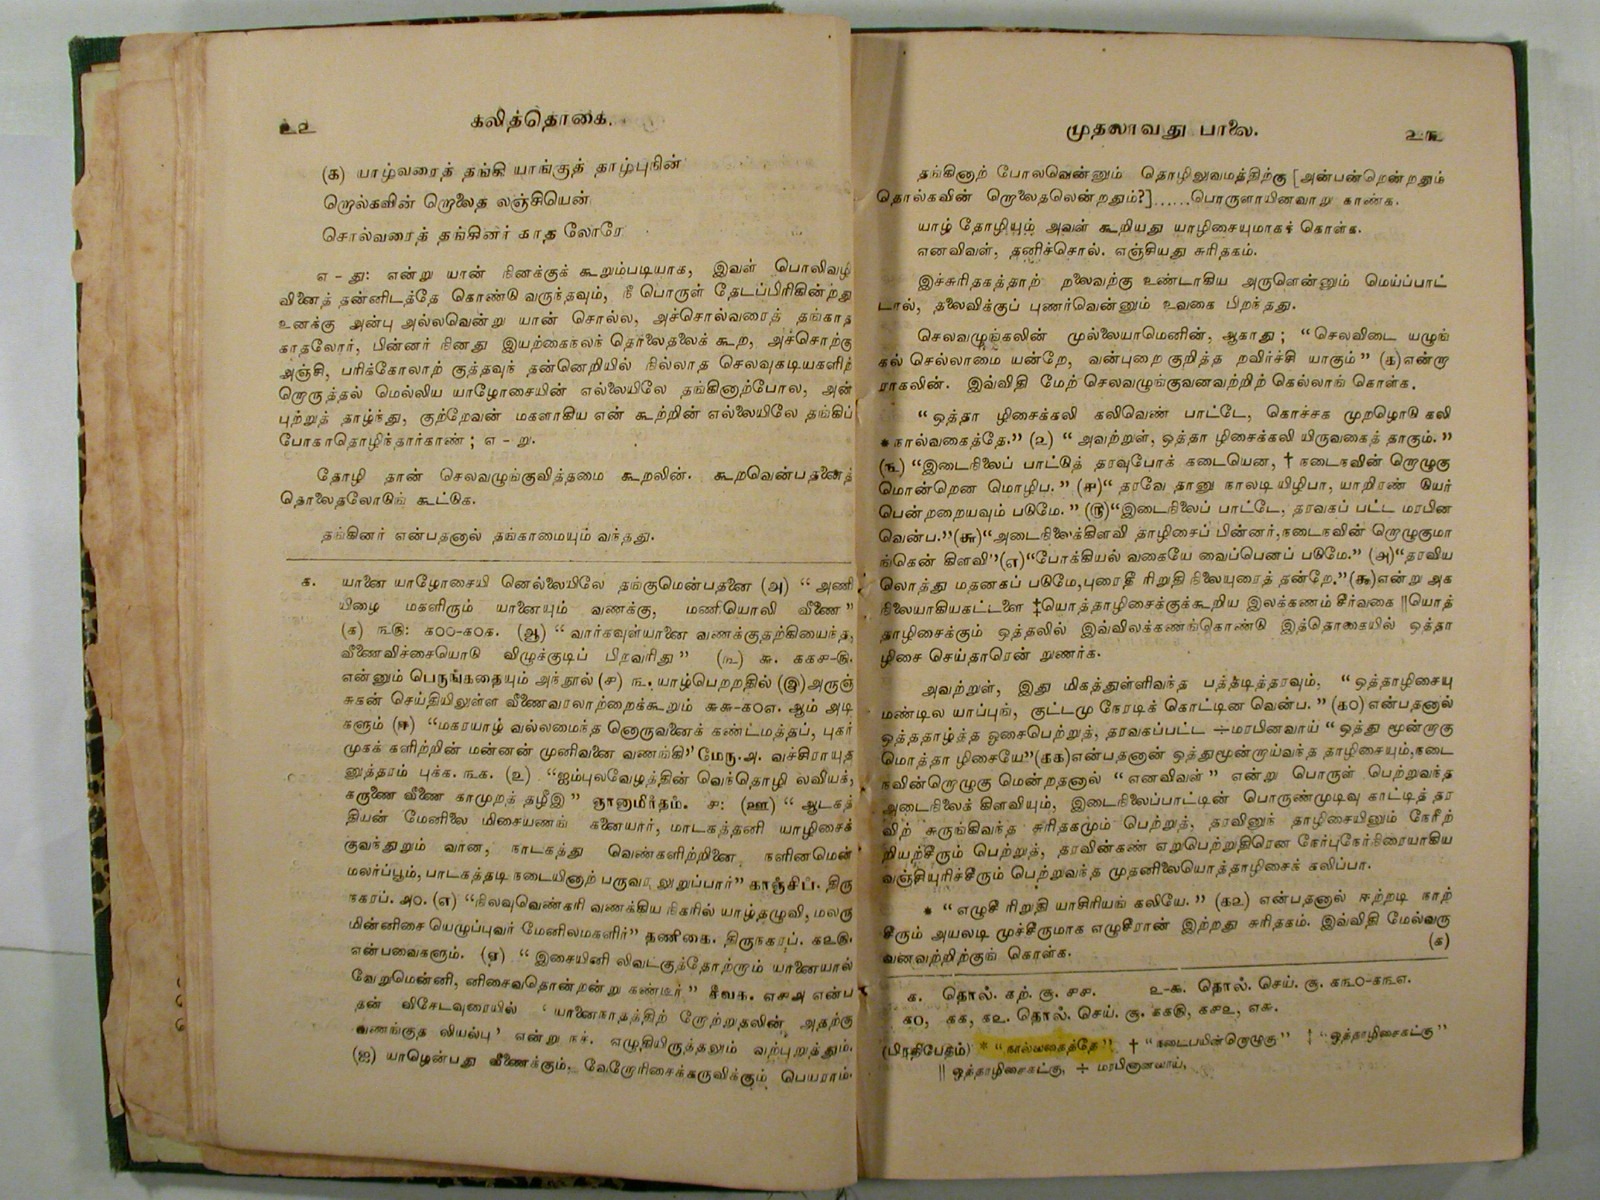 ௨௨
கலித்தொகை.
(௧) யாழ்வரைத் தங்கி யாங்குத் தாழ்புநின்
றொல்கவின் றொலைத லஞ்சியென்
சொல்வரைத் தங்கினர் காத லோரே
எ - து: என்று யான் நினக்குக் கூறும்படியாக, இவள் பொலிவழி
வினைத் தன்னிடத்தே கொண்டு வருந்தவும், நீ பொருள் தேடப்பிரிகின்றது
உனக்கு அன்பு அல்லவென்று யான் சொல்ல, அச்சொல்வரைத் தங்காத
காதலோர், பின்னர் நினது இயற்கைநலந் தொலைதலைக் கூற, அச்சொற்கு
அஞ்சி, பரிக்கோலாற் குத்தவுந் தன்னெறியில் நில்லாத செலவுகடியகளிற்
றொருத்தல் மெல்லிய யாழோசையின் எல்லையிலே தங்கினாற்போல, அன்
புற்றுத் தாழ்ந்து, குற்றேவன் மகளாகிய என் கூற்றின் எல்லையிலே தங்கிப்
போகாதொழிந்தார்காண் ; எ - று.
தோழி தான் செலவழுங்குவித்தமை கூறலின். கூறவென்பதனைத்
தொலைதலோடுங் கூட்டுக.
தங்கினர் என்பதனால் தங்காமையும் வந்தது.
௧. யானை யாழோசையி னெல்லையிலே தங்குமென்பதனை (அ) “ அணி
யிழை மகளிரும் யானையும் வணக்கு, மணியொலி வீணை”
(௧) ௩௫: ௧00-௧0௧. (ஆ) “ வார்கவுள்யானை வணக்குதற்கியைந்த,
வீணைவிச்சையொடு விழுக்குடிப் பிறவரிது” (௩) ௬. ௧௧௪-௫.
என்னும் பெருங்கதையும் அந்நூல் (௪) ௩. யாழ்பெற்றதில் (இ) அருஞ்
சுகன் செய்தியிலுள்ள வீணைவரலாற்றைக்கூறும் ௬௬-௧0௭. ஆம் அடி
களும் (ஈ) “மகரயாழ் வல்லமைந்த னொருவனைக் கண்டமத்தப், புகர்
முகக் களிற்றின் மன்னன் முனிவனை வணங்கி” மேரு.அ. வச்சிராயுத
னுத்தரம் புக்க. ௩௧. (உ) “ஐம்புலவேழத்தின் வெந்தொழி லவியக்,
கருணை வீணை காமுறத் தழீஇ” ஞானாமிர்தம். ௪: (ஊ) “ ஆடகத்
தியன் மேனிலை மிசையணங் கனையார், மாடகத்தனி யாழிசைக்
குவந்துறும் வான, நாடகத்து வெண்களிற்றினை நளினமென்
மலர்ப்பூம், பாடகத்தடி நடையினாற் பருவர லுறுப்பார்” காஞ்சிப். திரு
நகரப். ௮0. (எ) “நிலவுவெண்கரி வணக்கிய நிகரில் யாழ்தழுவி, மலரு
மின்னிசை யெழுப்புவர் மேனிலமகளிர்” தணிகை. திருநகரப். ௧௨௫.
என்பவைகளும். (ஏ) “ இசையினி லிவட்குத்தோற்றாம் யானையால்
வேறுமென்னி, னிசைவதொன்றன்று கண்டீர்” சீவக. ௭௩௮ என்ப
தன் விசேடவுரையில் ‘ யானைநாதத்திற் றோற்றுதலின் அதற்கு
வணங்குத லியல்பு’ என்று நச். எழுதியிருத்தலும் வற்புறுத்தும்.
(ஐ) யாழென்பது வீணைக்கும், வேறோரிசைக்கருவிக்கும் பெயராம்.
முதலாவது பாலை.
௨௩
தங்கினாற் போலவென்னும் தொழிலுவமத்திற்கு [அன்பன்றென்றதும்
தொல்கவின் றொலைதலென்றதும்?]......பொருளாயினவாறு காண்க.
யாழ் தோழியும் அவள் கூறியது யாழிசையுமாகக் கொள்க.
எனவிவள், தனிச்சொல். எஞ்சியது சுரிதகம்.
இச்சுரிதகத்தாற் றலைவற்கு உண்டாகிய அருளென்னும் மெய்ப்பாட்
டால், தலைவிக்குப் புணர்வென்னும் உவகை பிறந்தது.
செலவழுங்கலின் முல்லையாமெனின், ஆகாது ; “ செலவிடை யழுங்
கல் செல்லாமை யன்றே, வன்புறை குறித்த றவிர்ச்சி யாகும்” (௧) என்றா
ராகலின். இவ்விதி மேற் செலவழுங்குவனவற்றிற் கெல்லாங் கொள்க.
“ ஒத்தா ழிசைக்கலி கலிவெண் பாட்டே, கொச்சக முறழொடு கலி
* நால்வகைத்தே.” (௨) “ அவற்றுள், ஒத்தா ழிசைக்கலி யிருவகைத் தாகும்.”
(௩) “இடைநிலைப் பாட்டுத் தரவுபோக் கடையென, † நடைநவின் றொழுகு
மொன்றென மொழிப.” (௪) “ தரவே தானு நாலடி யிழிபா, யாறிரண் டுயர்
பென்றறையவும் படுமே.” (௫) “இடைநிலைப் பாட்டே, தரவகப் பட்ட மரபின
வென்ப.”(௬) “அடைநிலைக்கிளவி தாழிசைப் பின்னர்,நடைநவின் றொழுகுமா
ங்கென் கிளவி”(௭) “போக்கியல் வகையே வைப்பெனப் படுமே.” (௮) “தரவிய
லொத்து மதனகப் படுமே,புரைதீ ரிறுதி நிலையுரைத் தன்றே.” (௯) என்று அக
நிலையாகியகட்டளை ‡யொத்தாழிசைக்குக்கூறிய இலக்கணம் சீர்வகை ||யொத்
தாழிசைக்கும் ஒத்தலில் இவ்விலக்கணங்கொண்டு இத்தொகையில் ஒத்தா
ழிசை செய்தாரென் றுணர்க.
அவற்றுள், இது மிகத்துள்ளிவந்த பத்தடித்தரவும், “ஒத்தாழிசையு
மண்டில யாப்புங், குட்டமு நேரடிக் கொட்டின வென்ப.” (௧0) என்பதனால்
ஒத்ததாழ்த்த ஓசைபெற்றுத், தரவகப்பட்ட ÷மரபினவாய் “ ஒத்து மூன்றாகு
மொத்தா ழிசையே”(௧௧)என்பதனான் ஒத்துமூன்றாய்வந்த தாழிசையும்,நடை
நவின்றொழுகு மென்றதனால் “ எனவிவள்” என்று பொருள் பெற்றுவந்த
அடைநிலைக் கிளவியும், இடைநிலைப்பாட்டின் பொருண்முடிவு காட்டித் தர
விற் சுருங்கிவந்த சுரிதகமும் பெற்றுத், தரவினுந் தாழிசையினும் நேரீற்
றியற்சீரும் பெற்றுத், தரவின்கண் எறபெற்றுதிரென நேர்புநேர்நிரையாகிய
வஞ்சியுரிச்சீரும் பெற்றுவந்த முதனிலையொத்தாழிசைக் கலிப்பா.
* “ எழுசீ ரிறுதி யாசிரியங் கலியே.” (௧௨) என்பதனால் ஈற்றடி நாற்
சீரும் அயலடி முச்சீருமாக எழுசீரான் இற்றது சுரிதகம். இவ்விதி மேல்வரு
வனவற்றிற்குங் கொள்க. (௧)
௧. தொல். கற். சூ. ௪௪. ௨-௯. தொல். செய். சூ. ௧௩0-௧௩௭.
௧0, ௧௧, ௧௨. தொல். செய். சூ. ௧௧௫, ௧௪௨, ௭௬.
(பிரதிபேதம்) * “நால்வகைத்தே” † “நடைபயின்றொழுகு” ‡ “ஒத்தாழிசைகட்கு”
|| ஒத்தாழிசைகட்கு, ÷ மரபினானலாய்,